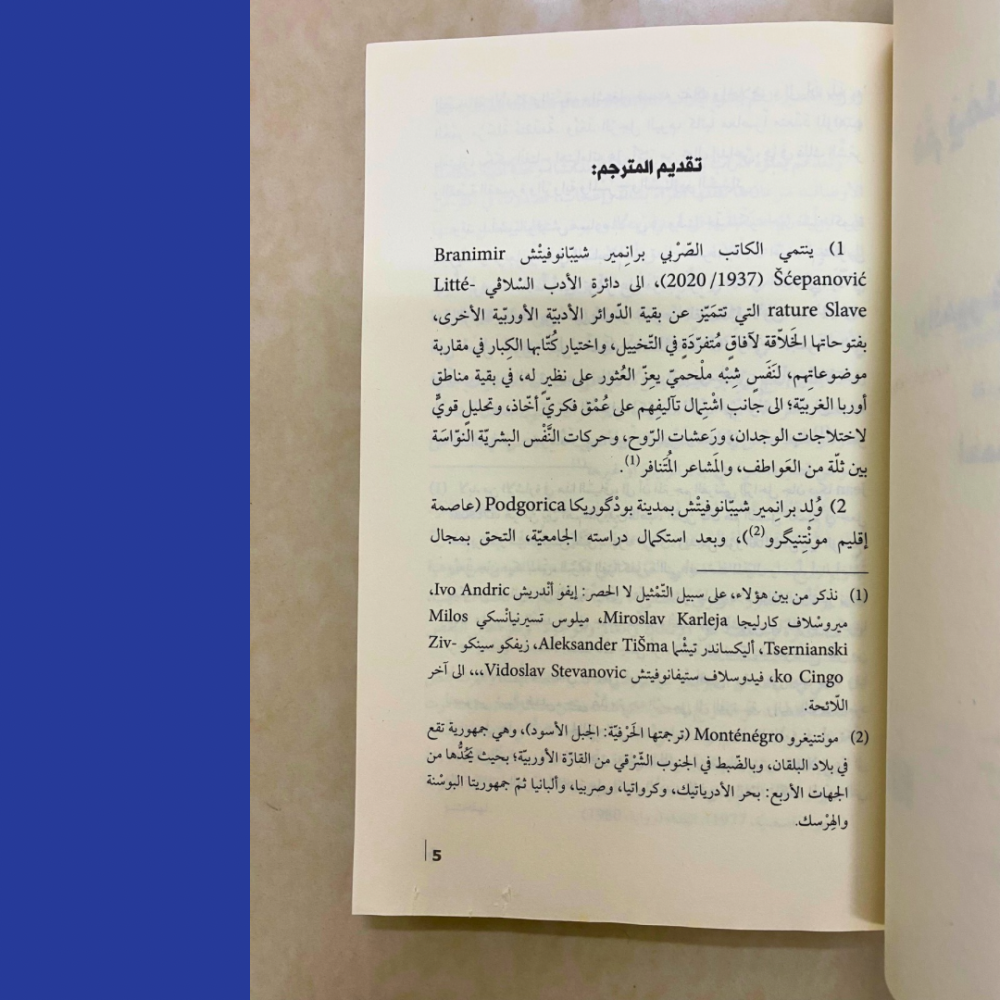 تقديم المترجم:
1) ينتمي الكاتب الصّرْبي برانِمير شيبّانوفيتْش Branimir
Šćepanović (2020/1937)، الى دائرةِ الأدب السْلاڤي Litté-
rature Slave التي تتمَيّز عن بقية الدّوائر الأدبيّة الأوربّية الأخرى،
بفتوحاتها الخَلاّقة لآفاقٍ مُتفرّدَةٍ في التّخييل، واختيار كُتّابها الكِبار في مقاربة
موضوعاتِهم، لنَفَسٍ شِبْه ملْحميّ يعِزّ العُثور على نظيرٍ له، في بقية مناطق
أوربا الغربيّة؛ الى جانب اشْتِمال تآليفِهم على عُمْق فكريّ أخّاذ، وتحليلٍ قويٍّ
لاختلاجات الوجدان، ورَعشات الرّوح، وحركات النَّفْس البشريّة النوّاسَة
بين ثلّة من العَواطف، والمَشاعر المُتَنافر(1).
2) وُلِد برانِمير شيبّانوفيتْش بمدينة بودْگوريكا Podgorica (عاصمة
إقليم مونْتِنيگرو(2))، وبعد استكمال دراسته الجامعيّة، التحق بمجال
(1) نذكر من بين هؤلاء، على سبيل التّمْثيل لا الحصر: إيفو أنْدريش Ivo Andric،
ميروسْلاف كارليجا Miroslav Karleja، ميلوس تسيرنيانْسكي Milos
Tsernianski، أليكساندر تيشْما Aleksander TiŠma، زيفكو سينكو Ziv-
ko Cingo، فيدوسلاف ستيفانوفيتش Vidoslav Stevanovic،،، الى آخر
اللّائحة.
(2) مونتنيغرو Monténégro (ترجمتها الحَرْفيّة: الجبل الأسود)، وهي جمهورية تقع
في بلاد البلقان، وبالضّبط في الجنوب الشّرْقي من القارّة الأوربيّة؛ بحيث يَحُدُّها من
الجهات الأربع: بحر الأدرياتيك، وكرواتيا، وصربيا، وألبانيا ثمّ جمهوريتا البوسْنة
والهِرْسك.
5